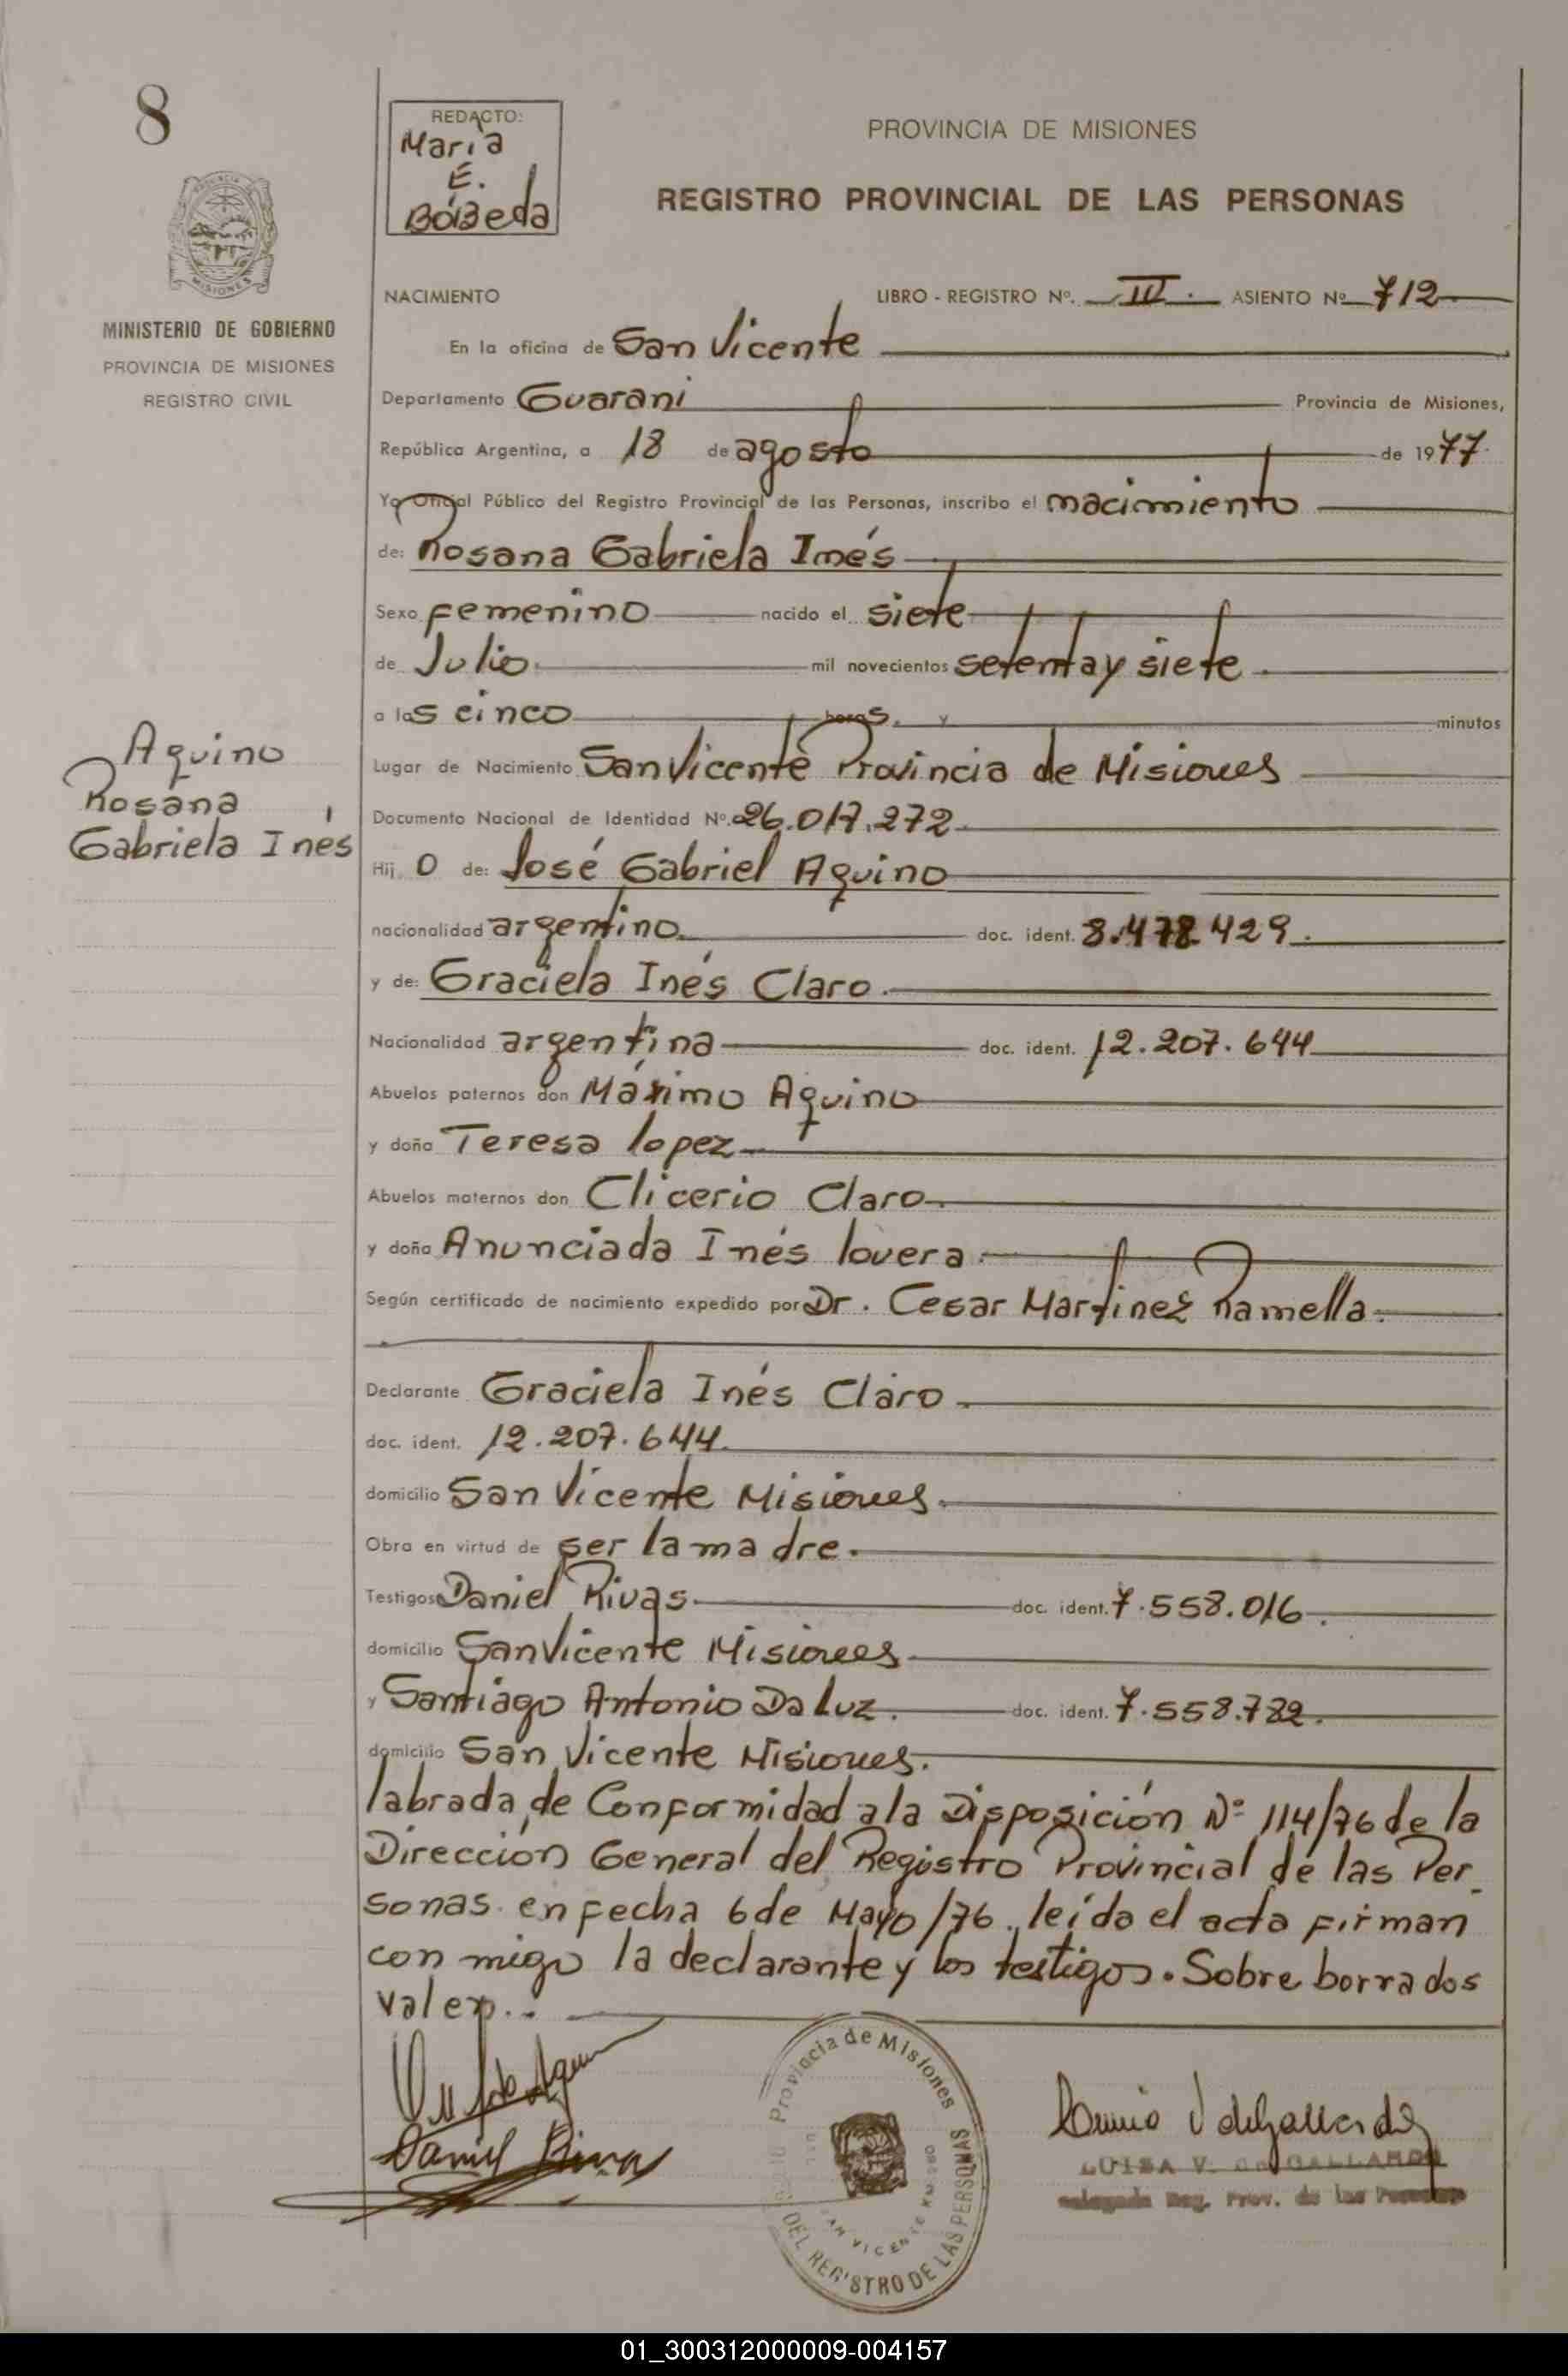 8
REDACTO:
María
E.
PROVINCIA DE MISIONES
REGISTRO PROVINCIAL DE LAS PERSONAS
MINISTERIO DE GOBIERNO
PROVINCIA DE MISIONES
REGISTRO CIVIL
NACIMIENTO LIBRO - REGISTRO Nº. III. ASIENTO Nº 712
En la oficina de San Vicente
Departamento Guarani Provincia de Misiones,
República Argentina, a 18 de agosto de 1977
Yo Oficial Público del Registro Provincial de las Personas, inscribo el nacimiento
de: Rosana Gabriela Inés
Sexo femenino nacido el siete
de Julio mil novecientos setenta y siete
a las cinco horas. y minutos
Aquino
Rosana
Gabriela Inés
Lugar de Nacimiento San Vicente Provincia de Misiones
Documento Nacional de Identidad Nº. 26.017.272
Hij o de: José Gabriel Aquino
nacionalidad argentino doc. ident. 8.478.429.
y de: Graciela Inés Claro.
Nacionalidad argentina doc. ident. 12.207.644
Abuelos paternos don Máximo Aquino
y doña Teresa lopez
Abuelos maternos don Clicerio Claro
y doña Anunciada Inés lovera
Según certificado de nacimiento expedido por Dr. Cesar Martinez Ramella.
Declarante Graciela Inés Claro
doc. ident. 12.207.644
domicilio San Vicente Misiones.
Obra en virtud de ser la madre.
Testigos Daniel Rivas doc. ident. 7.558.016.
domicilio San Vicente Misiones
y Santiago Antonio Da Luz. doc. ident. 7.558.782.
domicilio San Vicente Misiones.
labrada de Conformidad a la Disposición Nº 114/76 de la
Dirección General del Registro Provincial de las Per_
sonas en fecha 6 de Mayo/76. leída el acta firman
con migo la declarante y los testigos. Sobre borrados
valen..
Daniel Rivas
Provincia de Misiones
SAN VICENTE
DEL REGISTRO DE LAS PERSONAS
LUISA V. de GALLARDO
Delegada Reg. Prov. de las Personas
01_300312000009-004157